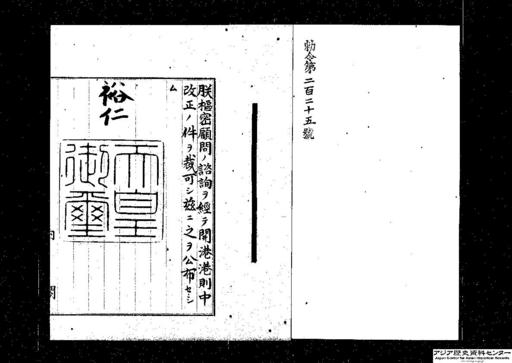 勅令第二百二十五號
朕樞密顧問ノ諮詢ヲ經テ開港港則中
改正ノ件ヲ裁可シ茲ニ之ヲ公布セシ
ム
裕仁
天皇
御璽
内閣
アジア歴史資料センター
Japan Center for Asian Historical Records